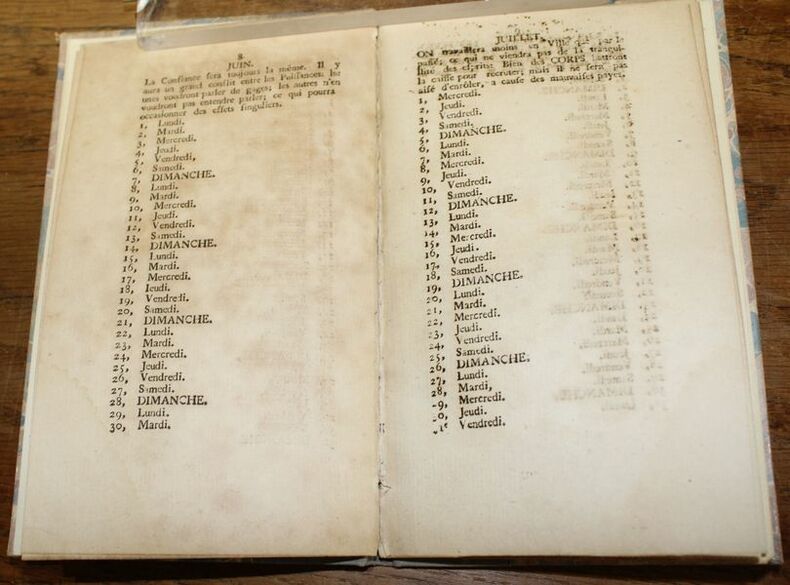 8
JUIN.
La Confiance sera toujours la même. Il y
aura un grand conflit entre les Puissances: les
unes voudront parler de gages; les autres n'en
voudront pas entendre parler; ce qui pourra
occasionner des effets singuliers.
1, Lundi.
2, Mardi.
3, Mercredi.
4, Jeudi.
5, Vendredi,
6, Samedi.
7, DIMANCHE.
8, Lundi.
9, Mardi.
10, Mercredi.
11, Jeudi.
12, Vendredi.
13, Samedi.
14, DIMANCHE.
15, Lundi.
16, Mardi.
17, Mercredi.
18, Jeudi.
19, Vendredi.
20, Samedi.
21, DIMANCHE.
22, Lundi.
23, Mardi.
24, Mercredi.
25, Jeudi.
26, Vendredi.
27, Samedi.
28, DIMANCHE.
29, Lundi.
30, Mardi.
JUILLET.
ON travaillera moins en Ville par le
passé; ce qui ne viendra pas de la tranquil-
lité des esprits. Bien des CORPS battront
la caisse pour recruter; mais il ne sera pas
aisé d'enrôler, a cause des mauvaises payes.
1, Mercredi.
2, Jeudi.
3, Vendredi.
4, Samedi.
5, DIMANCHE.
6, Lundi.
7, Mardi.
8, Mercredi.
9, Jeudi.
10, Vendredi.
11, Samedi.
12, DIMANCHE.
13, Lundi.
14, Mardi.
15, Mercredi.
16, Jeudi.
17, Vendredi.
18, Samedi.
19, DIMANCHE.
20, Lundi.
21, Mardi.
22, Mercredi.
23, Jeudi.
24, Vendredi.
25, Samedi.
26, DIMANCHE.
27, Lundi.
28, Mardi,
29, Mercredi.
30, Jeudi.
31, Vendredi.